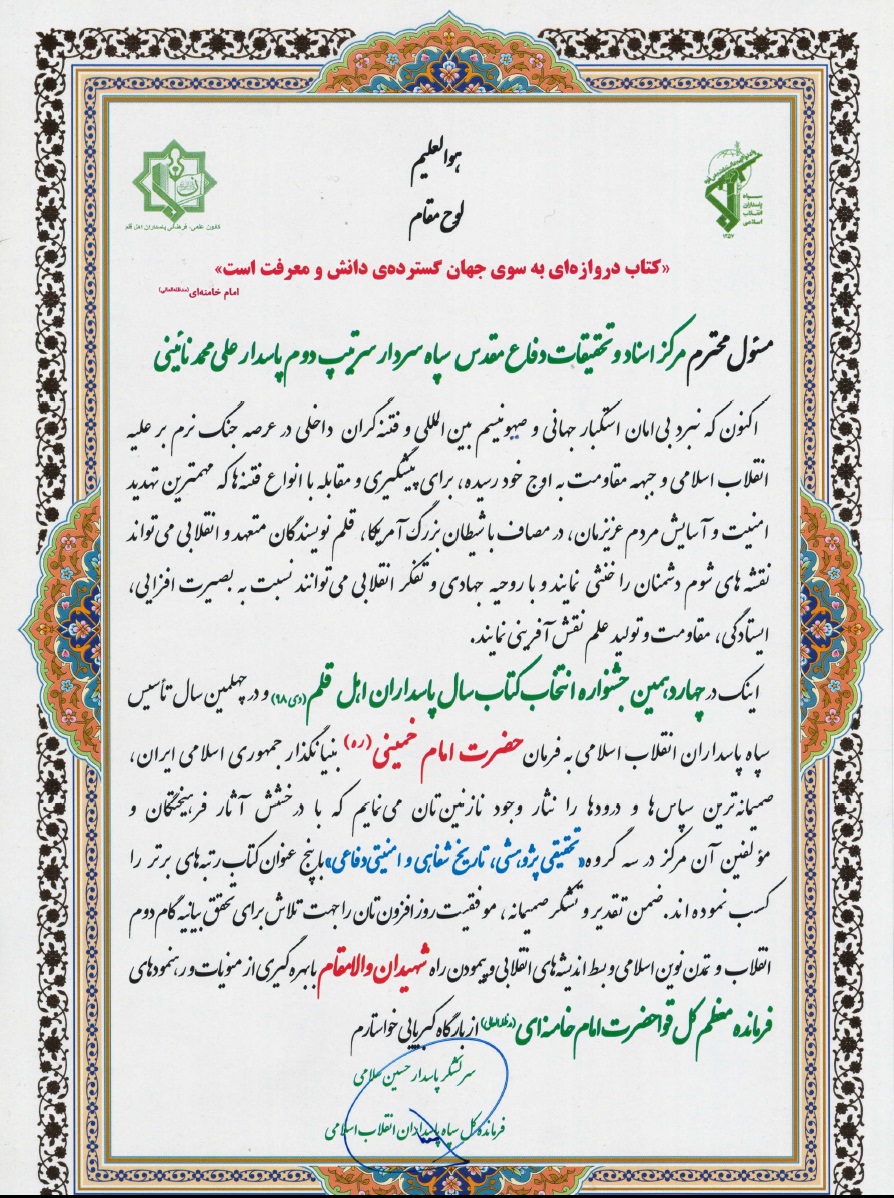 هوالعلیم
لوح مقام
سپاه
پاسداران
انقلاب
اسلامی
۱۳۵۷
کانون علمی، فرهنگی پاسداران اهل قلم
«کتاب دروازه‌ای به سوی جهان گسترده‌ی دانش و معرفت است»
امام خامنه‌ای (مدظله‌العالی)
مسئول محترم مرکز اسناد و تحقیقات دفاع مقدس سپاه سردار سرتیپ دوم پاسدار علی محمد نائینی
اکنون که نبرد بی‌امان استکبار جهانی و صهیونیسم بین المللی و فتنه‌گران داخلی در عرصه جنگ نرم بر علیه
انقلاب اسلامی و جبهه مقاومت به اوج خود رسیده، برای پیشگیری و مقابله با انواع فتنه‌ها که مهمترین تهدید
امنیت و آسایش مردم عزیزمان، در مصاف با شیطان بزرگ آمریکا، قلم نویسندگان متعهد و انقلابی می‌تواند
نقشه های شوم دشمنان را خنثی نمایند و با روحیه جهادی و تفکر انقلابی می‌توانند نسبت به بصیرت افزایی،
ایستادگی، مقاومت و تولید علم نقش آفرینی نمایند.
اینک در چهاردهمین جشنواره انتخاب کتاب سال پاسداران اهل قلم (دی ۹۸) و در چهلمین سال تأسیس
سپاه پاسداران انقلاب اسلامی به فرمان حضرت امام خمینی (ره) بنیانگذار جمهوری اسلامی ایران،
صمیمانه‌ترین سپاس‌ها و درودها را نثار وجود نازنین‌تان می‌نمایم که با درخشش آثار فرهیختگان و
مؤلفین آن مرکز در سه گروه «تحقیقی پژوهشی، تاریخ شفاهی و امنیتی دفاعی» با پنج عنوان کتاب رتبه‌های برتر را
کسب نموده اند. ضمن تقدیر و تشکر صمیمانه، موفقیت روزافزون‌تان را جهت تلاش برای تحقق بیانیه گام دوم
انقلاب و تمدن نوین اسلامی و بسط اندیشه‌های انقلابی و پیمودن راه شهیدان والامقام با بهره‌گیری از منویات و رهنمودهای
فرمانده معظم کل قوا حضرت امام خامنه‌ای (مدظله‌العالی) از بارگاه کبریایی خواستارم
سرلشکر پاسدار حسین سلامی
فرمانده کل سپاه پاسداران انقلاب اسلامی